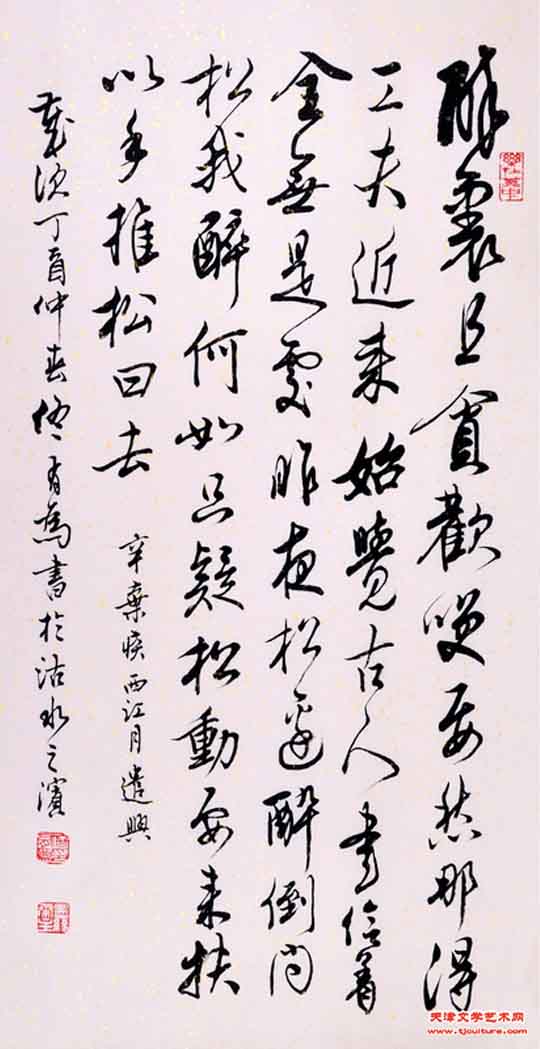 醉裏且貪歡笑要愁那得
工夫近来始覺古人书信着
全無是處昨夜松邊醉倒问
松我醉何如只疑松動要来扶
以手推松曰去
辛棄疾西江月遣興
歲次丁酉仲春佟有為書於沽水之濱
天津文学艺术网
www.tjculture.com